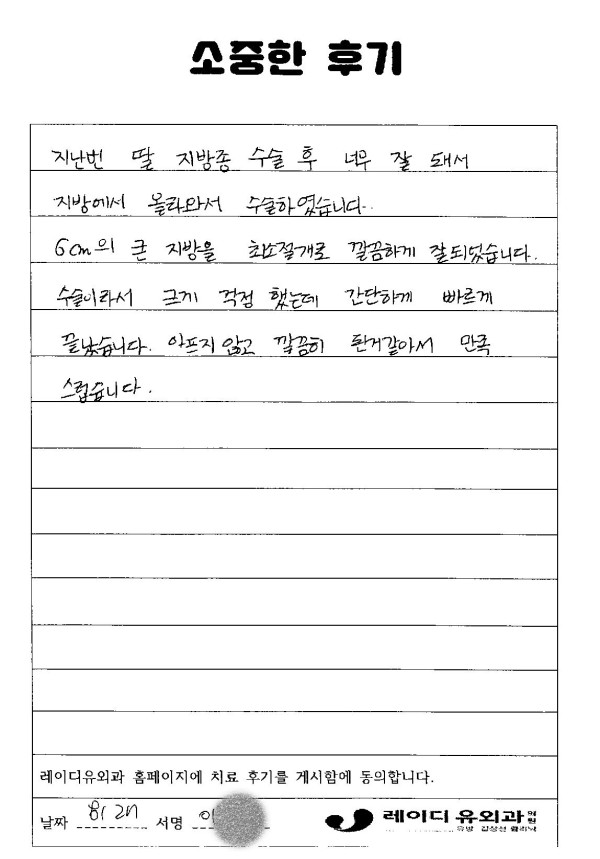 소중한 후기
지난번 딸 지방종 수술 후 너무 잘 돼서
지방에서 올라와서 수술하였습니다.
6cm의 큰 지방을 최소절개로 깔끔하게 잘되었습니다.
수술이라서 크게 걱정 했는데 간단하게 빠르게
끝났습니다. 아프지 않고 깔끔히 된거같아서 만족
스럽습니다.
레이디유외과 홈페이지에 치료 후기를 게시함에 동의합니다.
날짜 8/27 서명 이
레이디유외과의원
유방 갑상선 클리닉